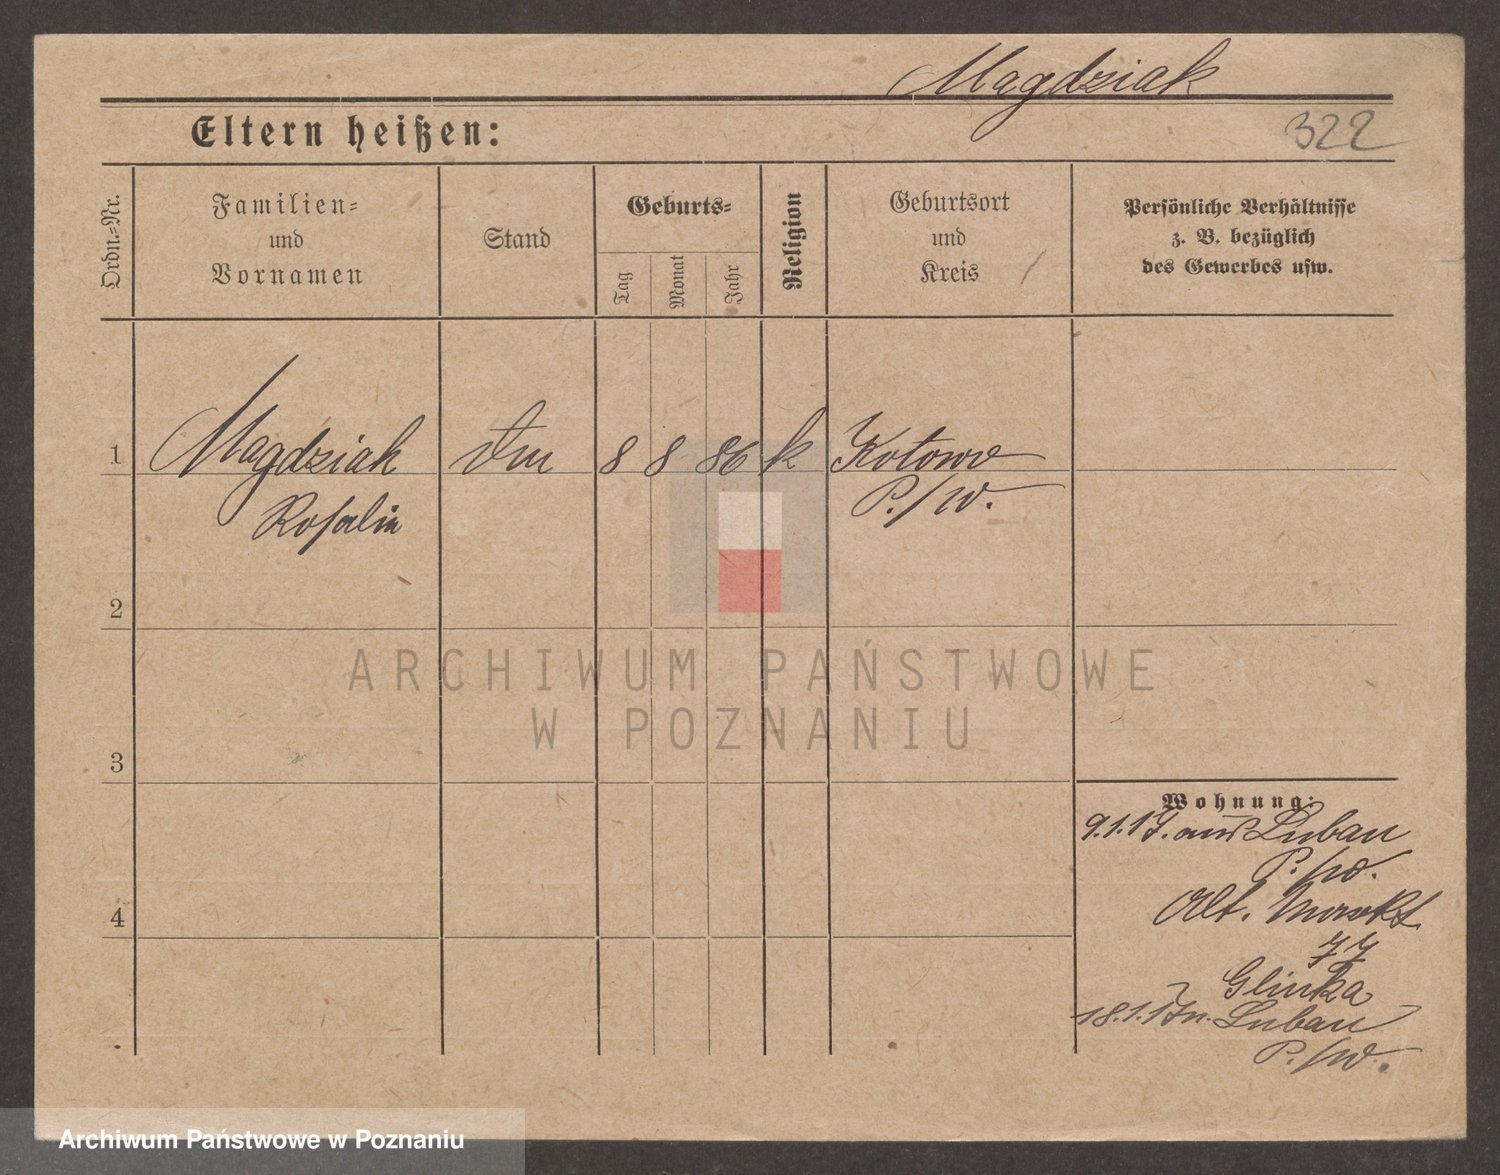 Magdziak
322
Eltern heißen:
Ordn.=Nr.
Familien=
und
Vornamen
Stand
Geburts=
Tag
Monat
Jahr
Religion
Geburtsort
und
Kreis
Persönliche Verhältnisse
z. B. bezüglich
des Gewerbes usw.
1
Magdziak
Rosalia
8 8 86 k
Kotowo
P./W.
2
ARCHIWUM PAŃSTWOWE
W POZNANIU
3
Wohnung:
9.1.17. aus Luban
P./W.
Alt. Markt
77
Glinka
18.1.17 n. Luban
P./W.
4
Archiwum Państwowe w Poznaniu